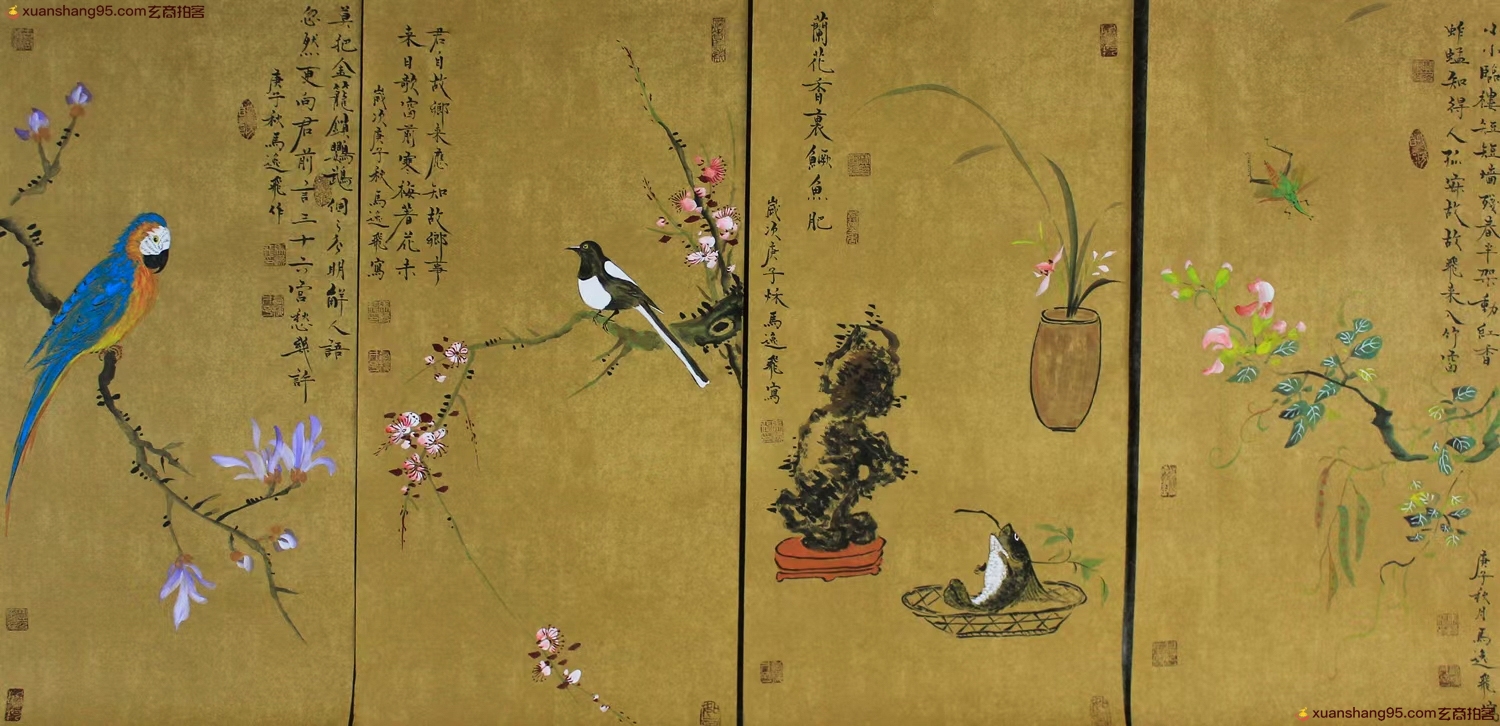 xuanshang95.com玄商拍客
莫把金籠鎖鸚鵡個々分明解人語
忽然更向君前言三十六宮愁幾許
庚子秋馬逸飛作
君自故鄉来應知故鄉事
来日歌窗前寒梅著花未
歲次庚子秋馬逸飛寫
蘭花香裏鱖魚肥
歲次庚子秌馬逸飛寫
小小臨樓短短墙殘春半架動紅香
蚱蜢知得人孤寂故故飛来入竹窗
庚子秋月馬逸飛寫
xuanshang95.com玄商拍客